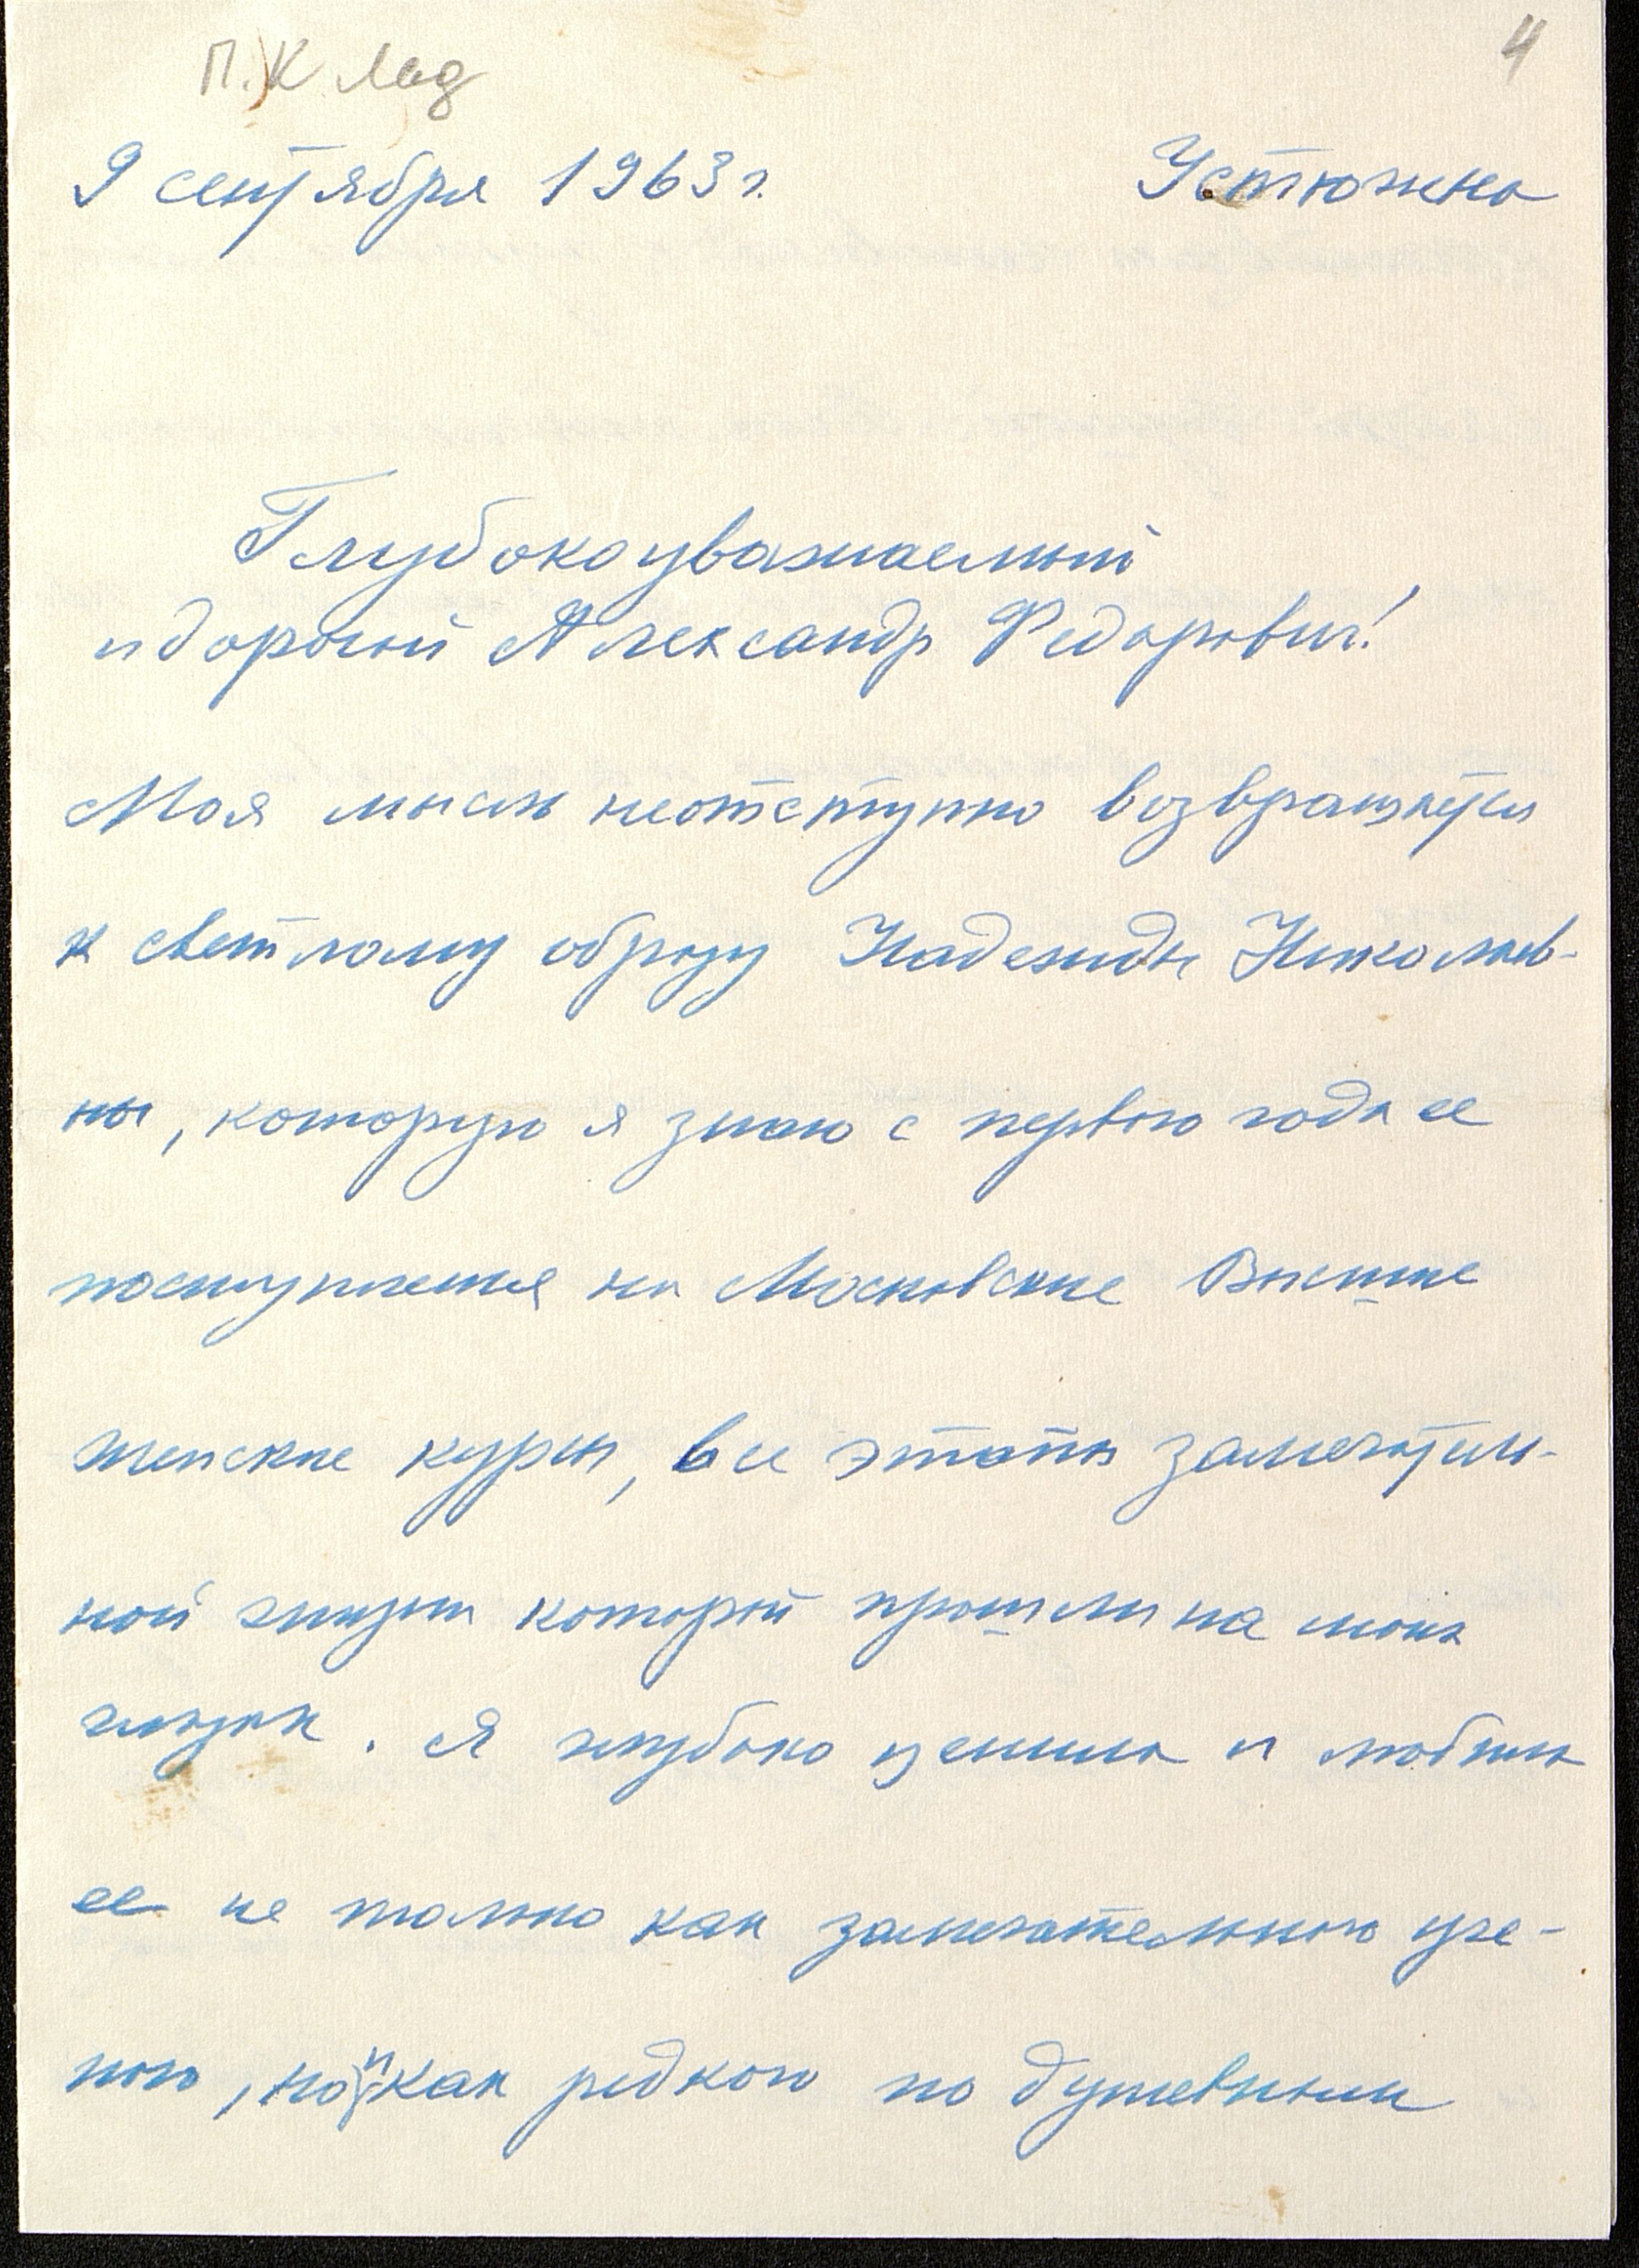 П.К Лад
4
9 сентября 1963 г.
Устюжна
Глубокоуважаемый
и дорогой Александр Федорович!
Моя мысль неотступно возвращается
к светлому образу Надежды Николаев-
ны, которую я знаю с первого года ее
поступления на Московские Высшие
женские курсы, все этапы замечатель-
ной жизни которой прошли на моих
глазах. Я глубоко ценила и любила
ее не только как замечательного уче-
ного, но и как редкого по душевным